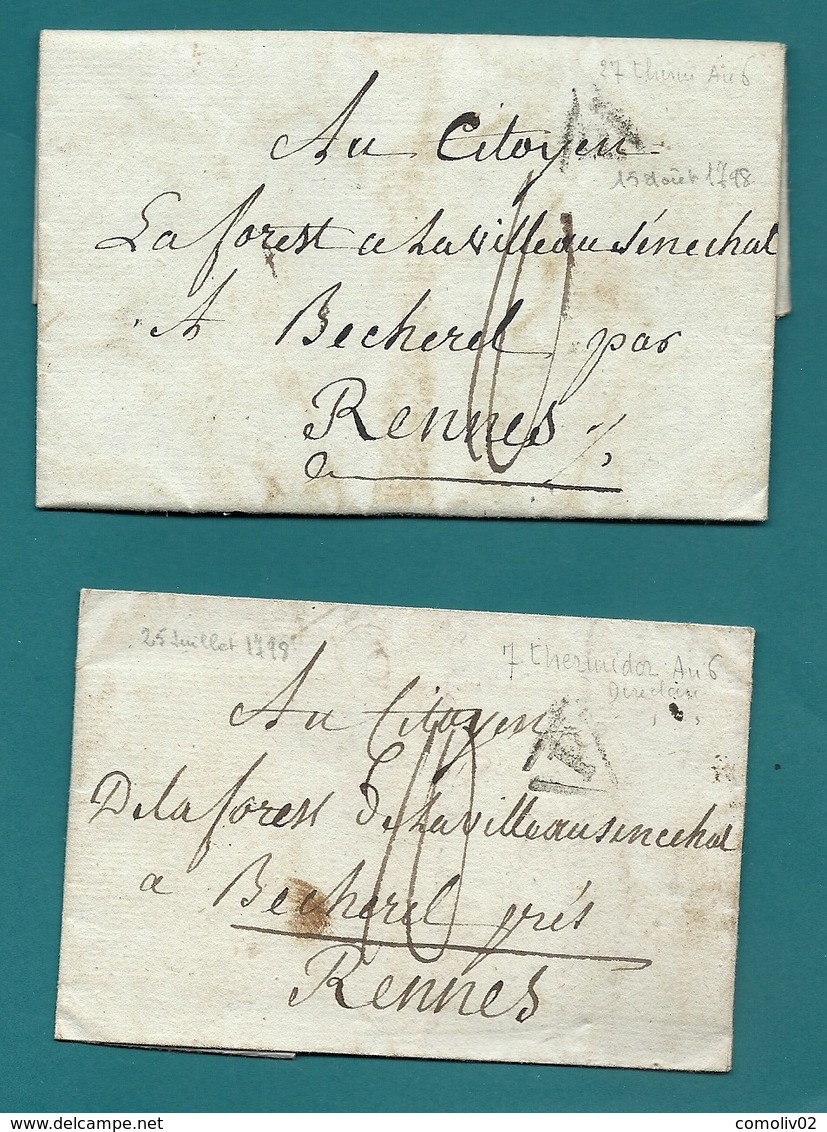 27 therm An 6
Au Citoyen
15 Août 1798
La forest a Lavilleausénechal
A Becherel par
Rennes
25 Juillet 1798
7 thermidor An 6
Au Citoyen
Delaforest De Lavilleausenechal
a Becherel prés
Rennes
delcampe.net
comoliv02